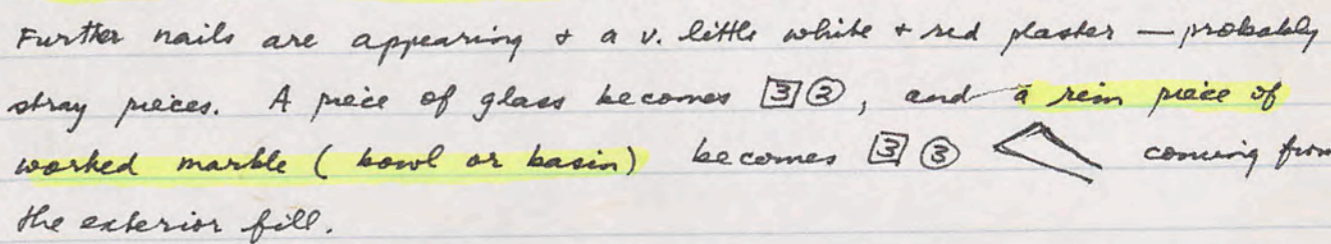 Further nails are appearing & a v. little white + red plaster — probably
stray pieces. A piece of glass becomes [3] (2), and a rim piece of
worked marble (bowl or basin) becomes [3] (3) coming from
the exterior fill.